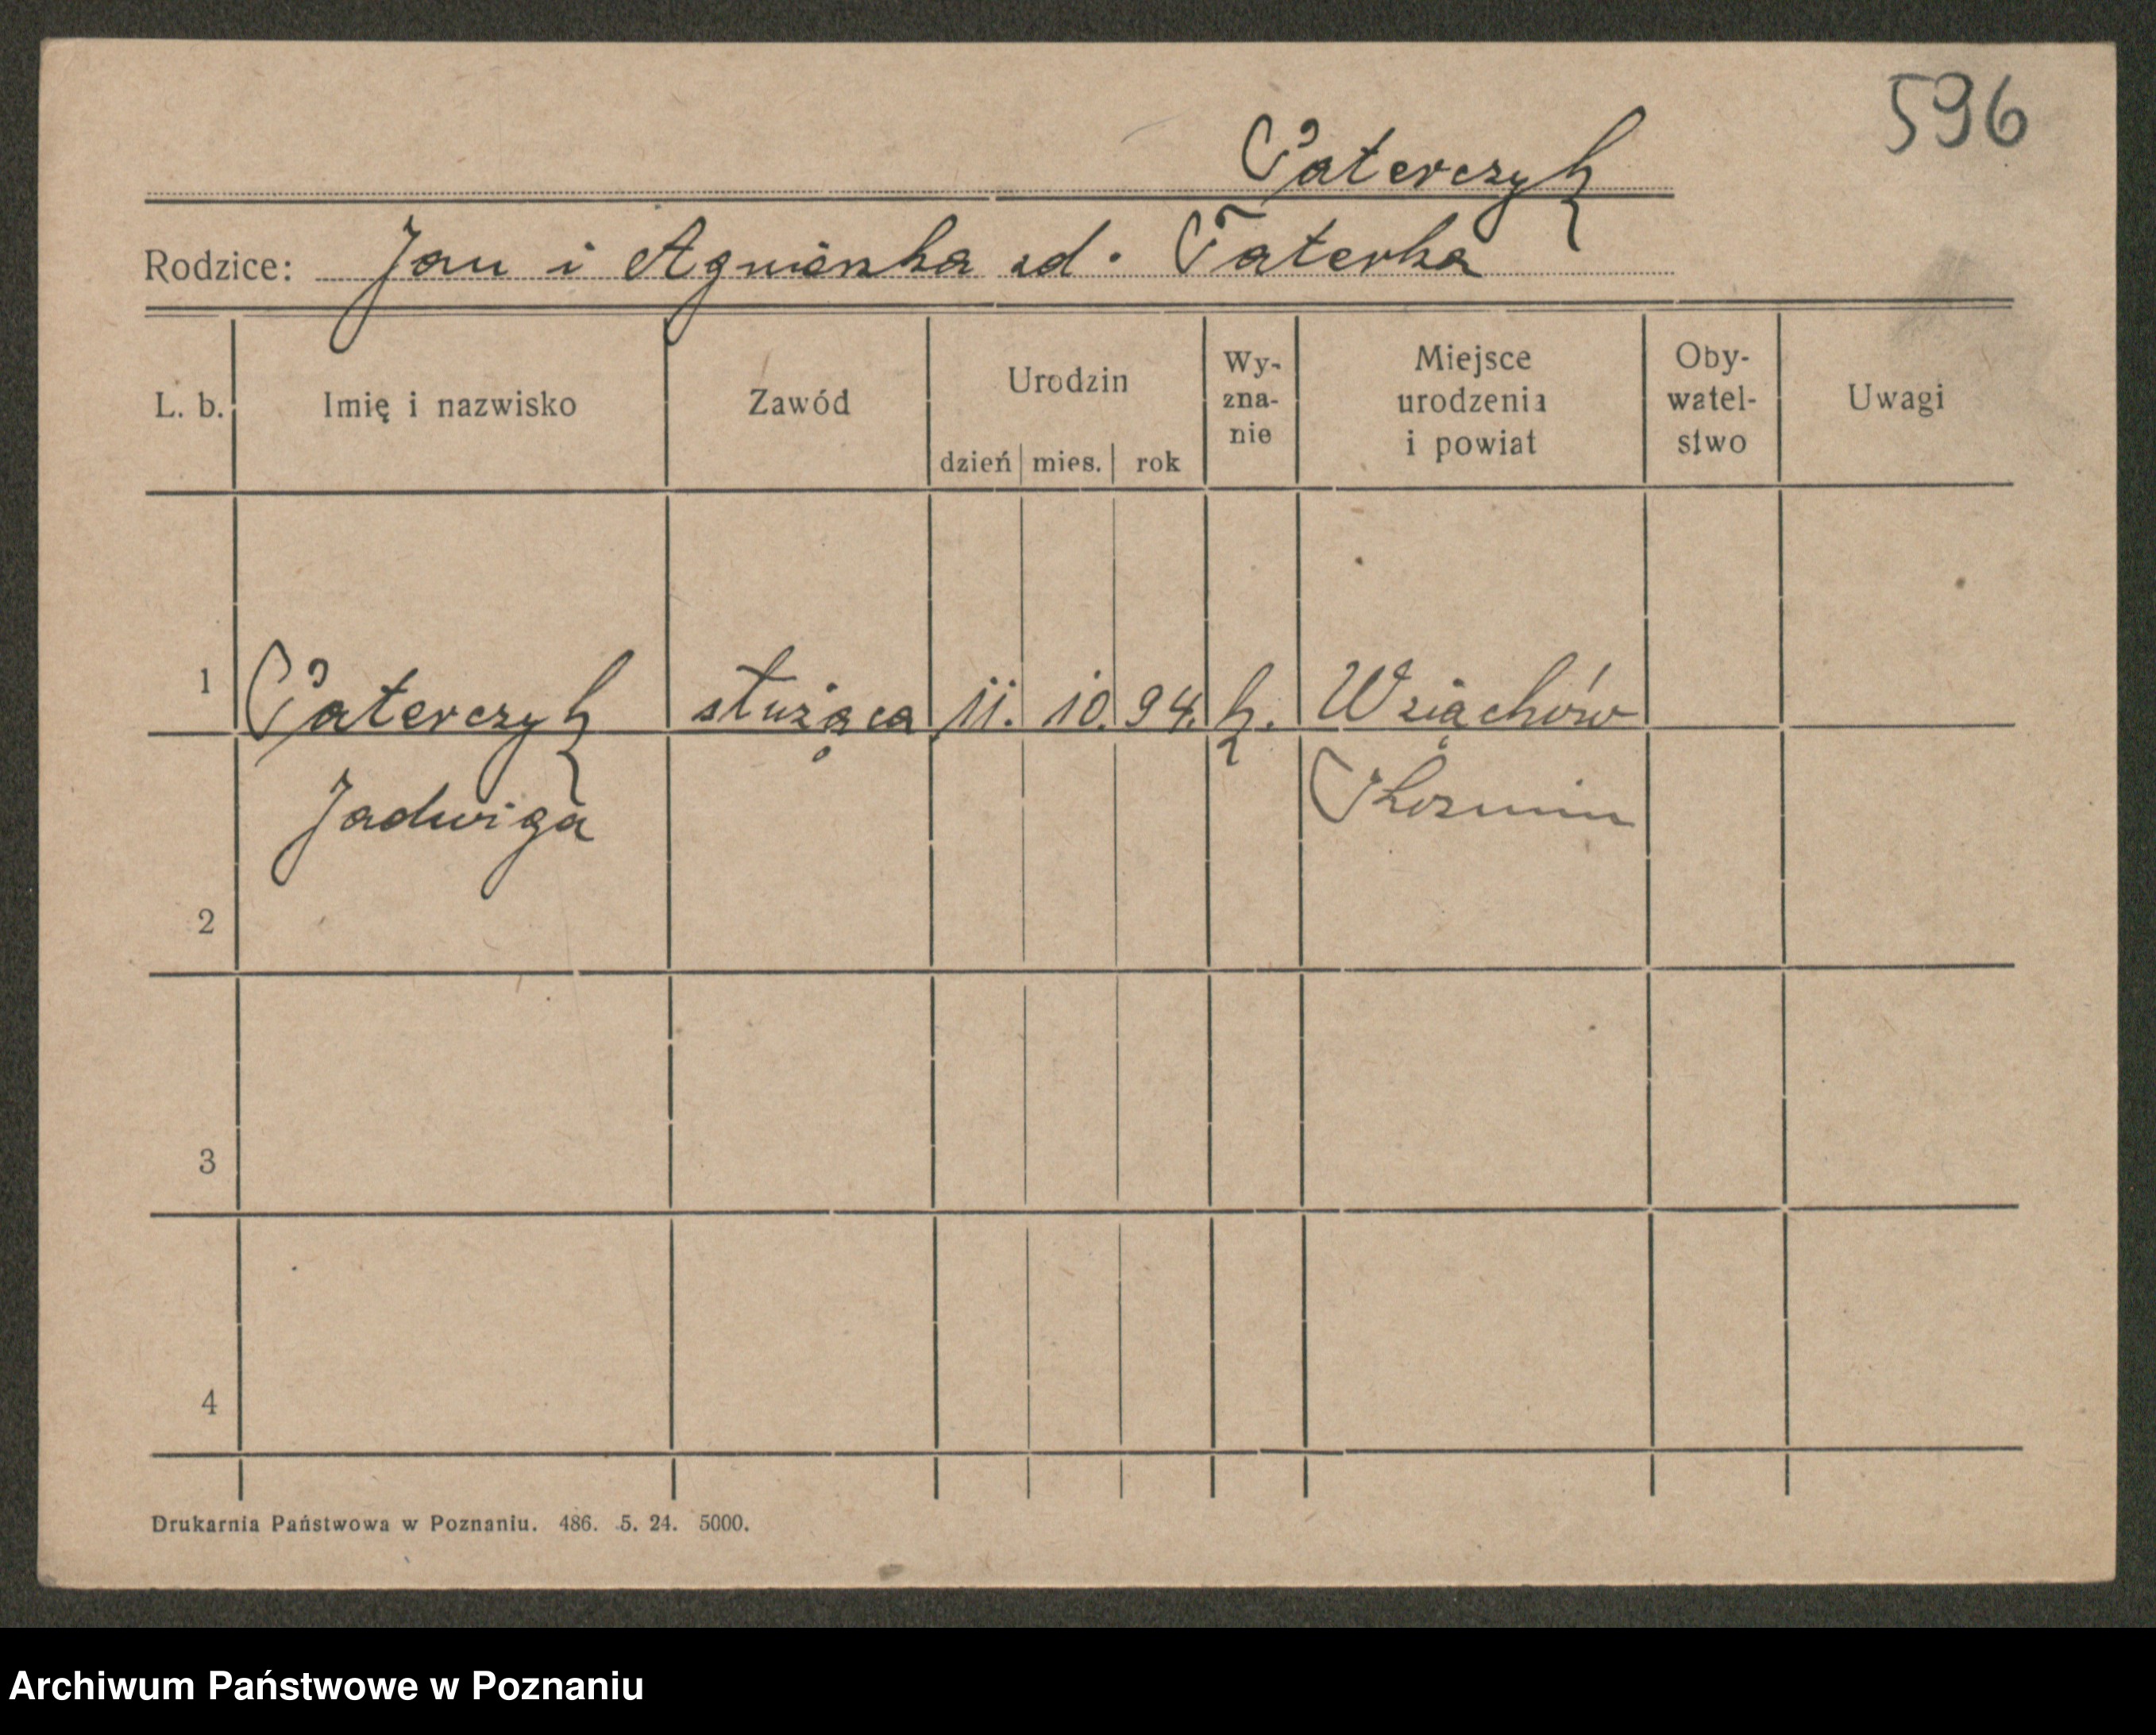 596
Paterczyk
Rodzice: Jan i Agnieszka zd. Taterka
L. b. Imię i nazwisko Zawód Urodzin dzień mies. rok Wy-zna-nie Miejsce urodzenia i powiat Oby-watel-stwo Uwagi
1 Paterczyk służąca 11. 10. 94. k. Wziąchów
Jadwiga Koźmin
2
3
4
Drukarnia Państwowa w Poznaniu. 486. 5. 24. 5000.
Archiwum Państwowe w Poznaniu